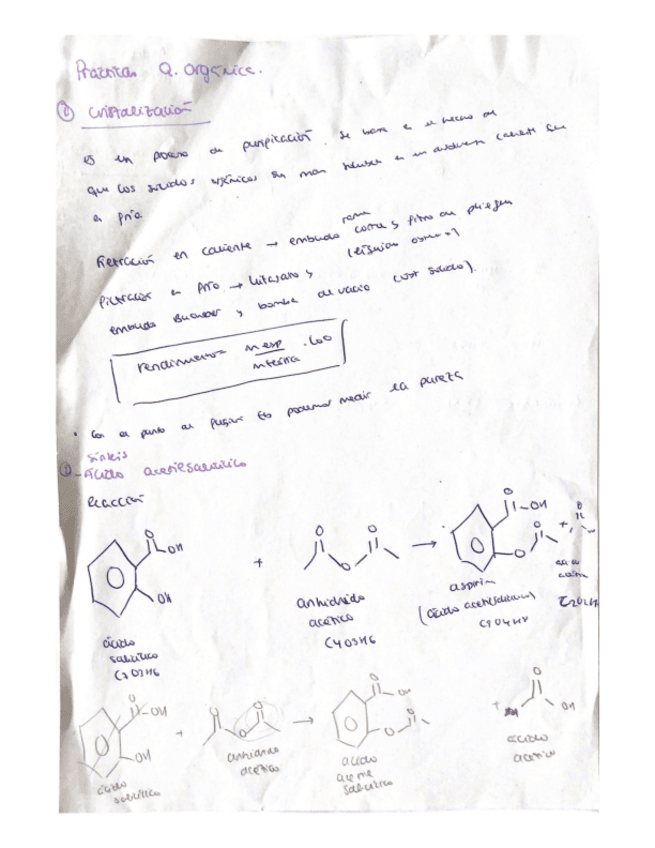 Practicas Q. Orgánica.
① cristalización
es un proceso de purificación. Se basa en el hecho de
que los solidos orgánicos son mas solubles en un disolvente caliente que
en frio
Filtración en caliente → embudo rama corta y filtro de pliegues
(eliminan
Filtración en frio → kitasato y
embudo Buchner y bomba de vacio (crist solido).
rendimiento = m exp / m teorica . 100
• Con el punto de fusion Es podemos medir la pureza
síntesis
① - Ácido acetilsalicilico
Reacción
O
OH
OH
+
O O
O
→
O
OH
O
O
+
ácido
salicilico
C7O3H6
anhidrido
acético
C4O3H6
aspirina
(ácido acetilsalicilico)
C9O4H8
C2O2H4
O
OH
OH
+
O O
O
→
O
OH
O
O
+
O
OH
ácido
salicilico
anhidrido
acetico
acido
salicilico
ácido
acetico